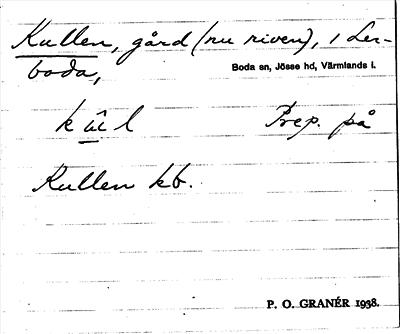 Kullen, gård (nu riven), i Ler-
boda,
Boda sn, Jösse hd, Värmlands l.
k û l Prep. på
Kullen kb.
P. O. GRANÉR 1938.